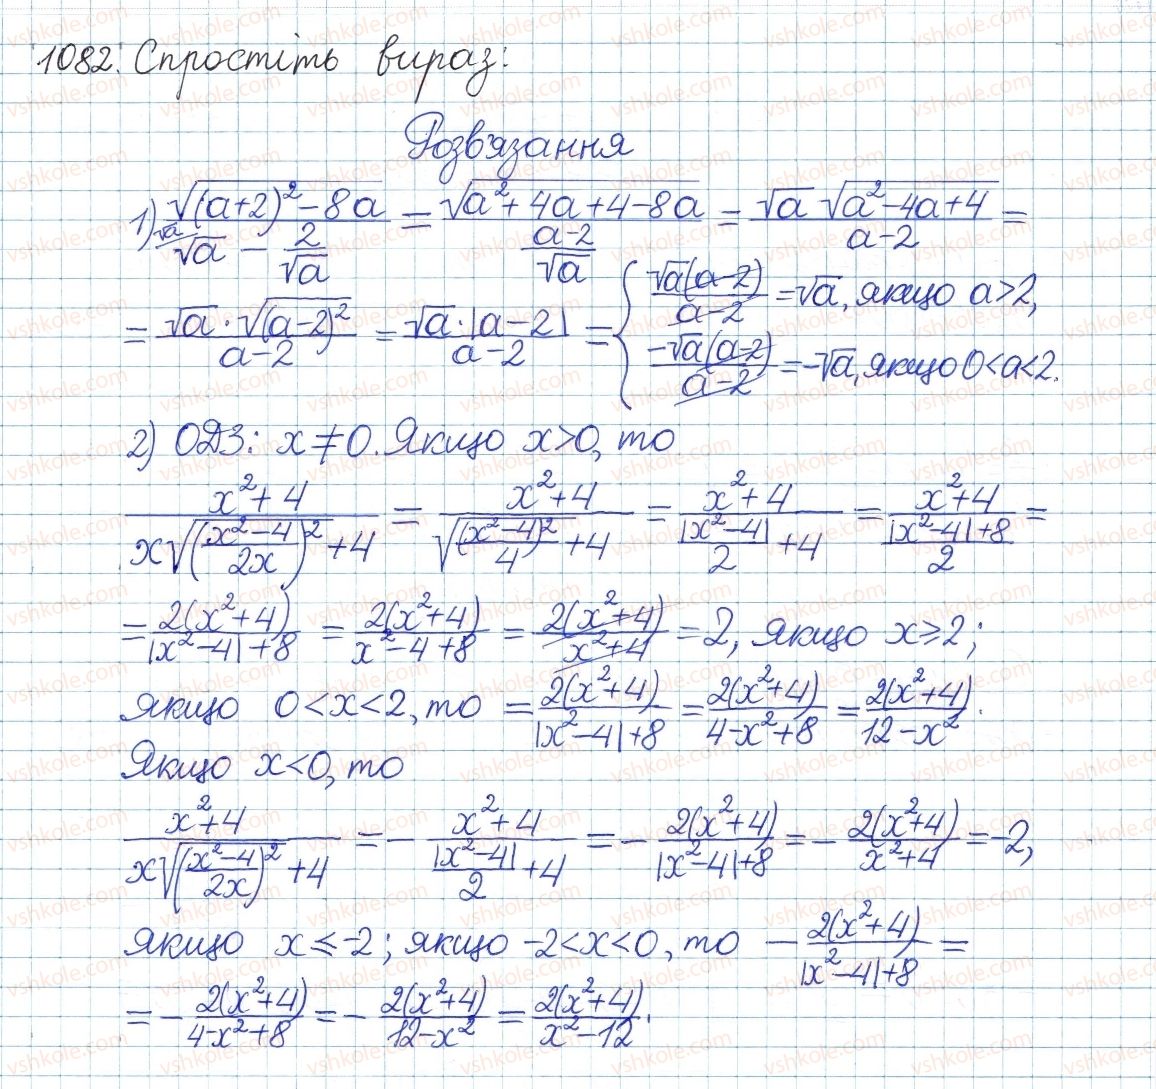 1082. Спростіть вираз:
Розв'язання
1) √((a+2)²-8a) / (√a √a - 2/√a) = √(a²+4a+4-8a) / ((a-2)/√a) = √a √(a²-4a+4) / (a-2) =
= √a · √((a-2)²) / (a-2) = √a · |a-2| / (a-2) = { √a(a-2) / (a-2) = √a, якщо a>2,
-√a(a-2) / (a-2) = -√a, якщо 0<a<2.
2) ОДЗ: x≠0. Якщо x>0, то
(x²+4) / (x√(((x²-4)/2x)²)+4) = (x²+4) / (√((x²-4)²/4)+4) = (x²+4) / (|x²-4|/2 +4) = (x²+4) / ((|x²-4|+8)/2) =
= 2(x²+4) / (|x²-4|+8) = 2(x²+4) / (x²-4+8) = 2(x²+4) / (x²+4) = 2, якщо x⩾2;
якщо 0<x<2, то = 2(x²+4) / (|x²-4|+8) = 2(x²+4) / (4-x²+8) = 2(x²+4) / (12-x²).
Якщо x<0, то
(x²+4) / (x√(((x²-4)/2x)²)+4) = - (x²+4) / (|x²-4|/2 +4) = - 2(x²+4) / (|x²-4|+8) = - 2(x²+4) / (x²+4) = -2,
якщо x⩽-2; якщо -2<x<0, то - 2(x²+4) / (|x²-4|+8) =
= - 2(x²+4) / (4-x²+8) = - 2(x²+4) / (12-x²) = 2(x²+4) / (x²-12).